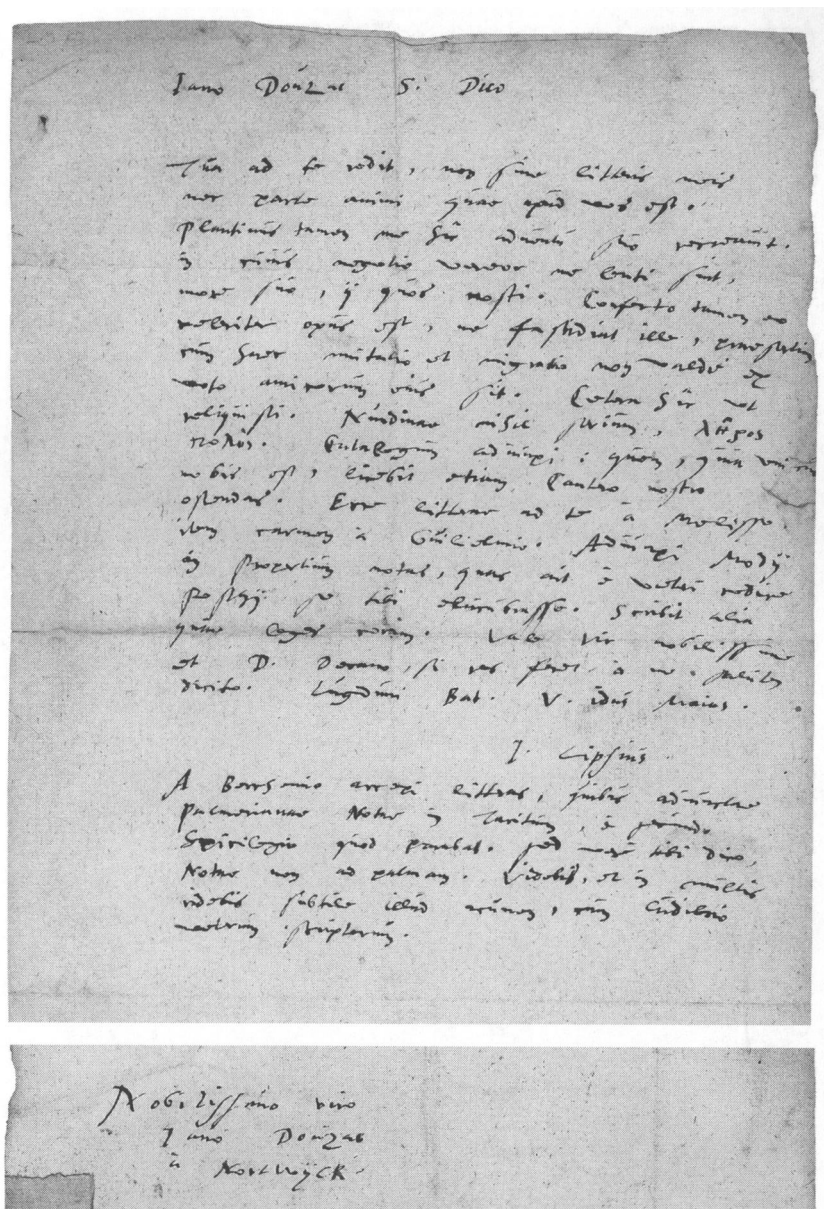 Iano Douzae S. Dico
Tua ad te redit, non sine litteris meis
nec parte animi quae apud vos est.
Plantinus tamen me hîc adventu suo recreavit.
in cuius negotio vereor ne lenti sint,
more suo, ij quos nosti. Confecto tamen eo
celeriter opus est, ne fastidiat ille, praesertim
cùm haec mutatio et migratio non valdè ex
voto amicorum eius sit. Cetera hîc ut
reliquisti. Nundinae nihil serium, λῆρος
πολύς. Catalogum adiunxi: quem, quia
nobis est, licebit etiam Cantero nostro
ostendas. Ecce litterae ad te à Melisso.
item carmen à Guilielmio. Adiunxi Modij
in Propertium notas, quas ait è veteri codice
se tibi elucubrasse. Scribit alia
quae leges coram. Vale vir nobilissime
et D. Decano, si res feret, à me salutem
dicito. Lugduni Bat. V. idus Maias.
I. Lipsius
A Berchemio accepi litteras, quibus adiunctae
Palmerianae Notae in Tacitum, è secundo
Spicilegio quod parabat. sed verè tibi dico,
Notae non ad palmam. Videbis, et in multis
ridebis subtile illud acumen, cum ludibrio
veterum scriptorum.
Nobilissimo viro
Iano Douzae
Nortwijck